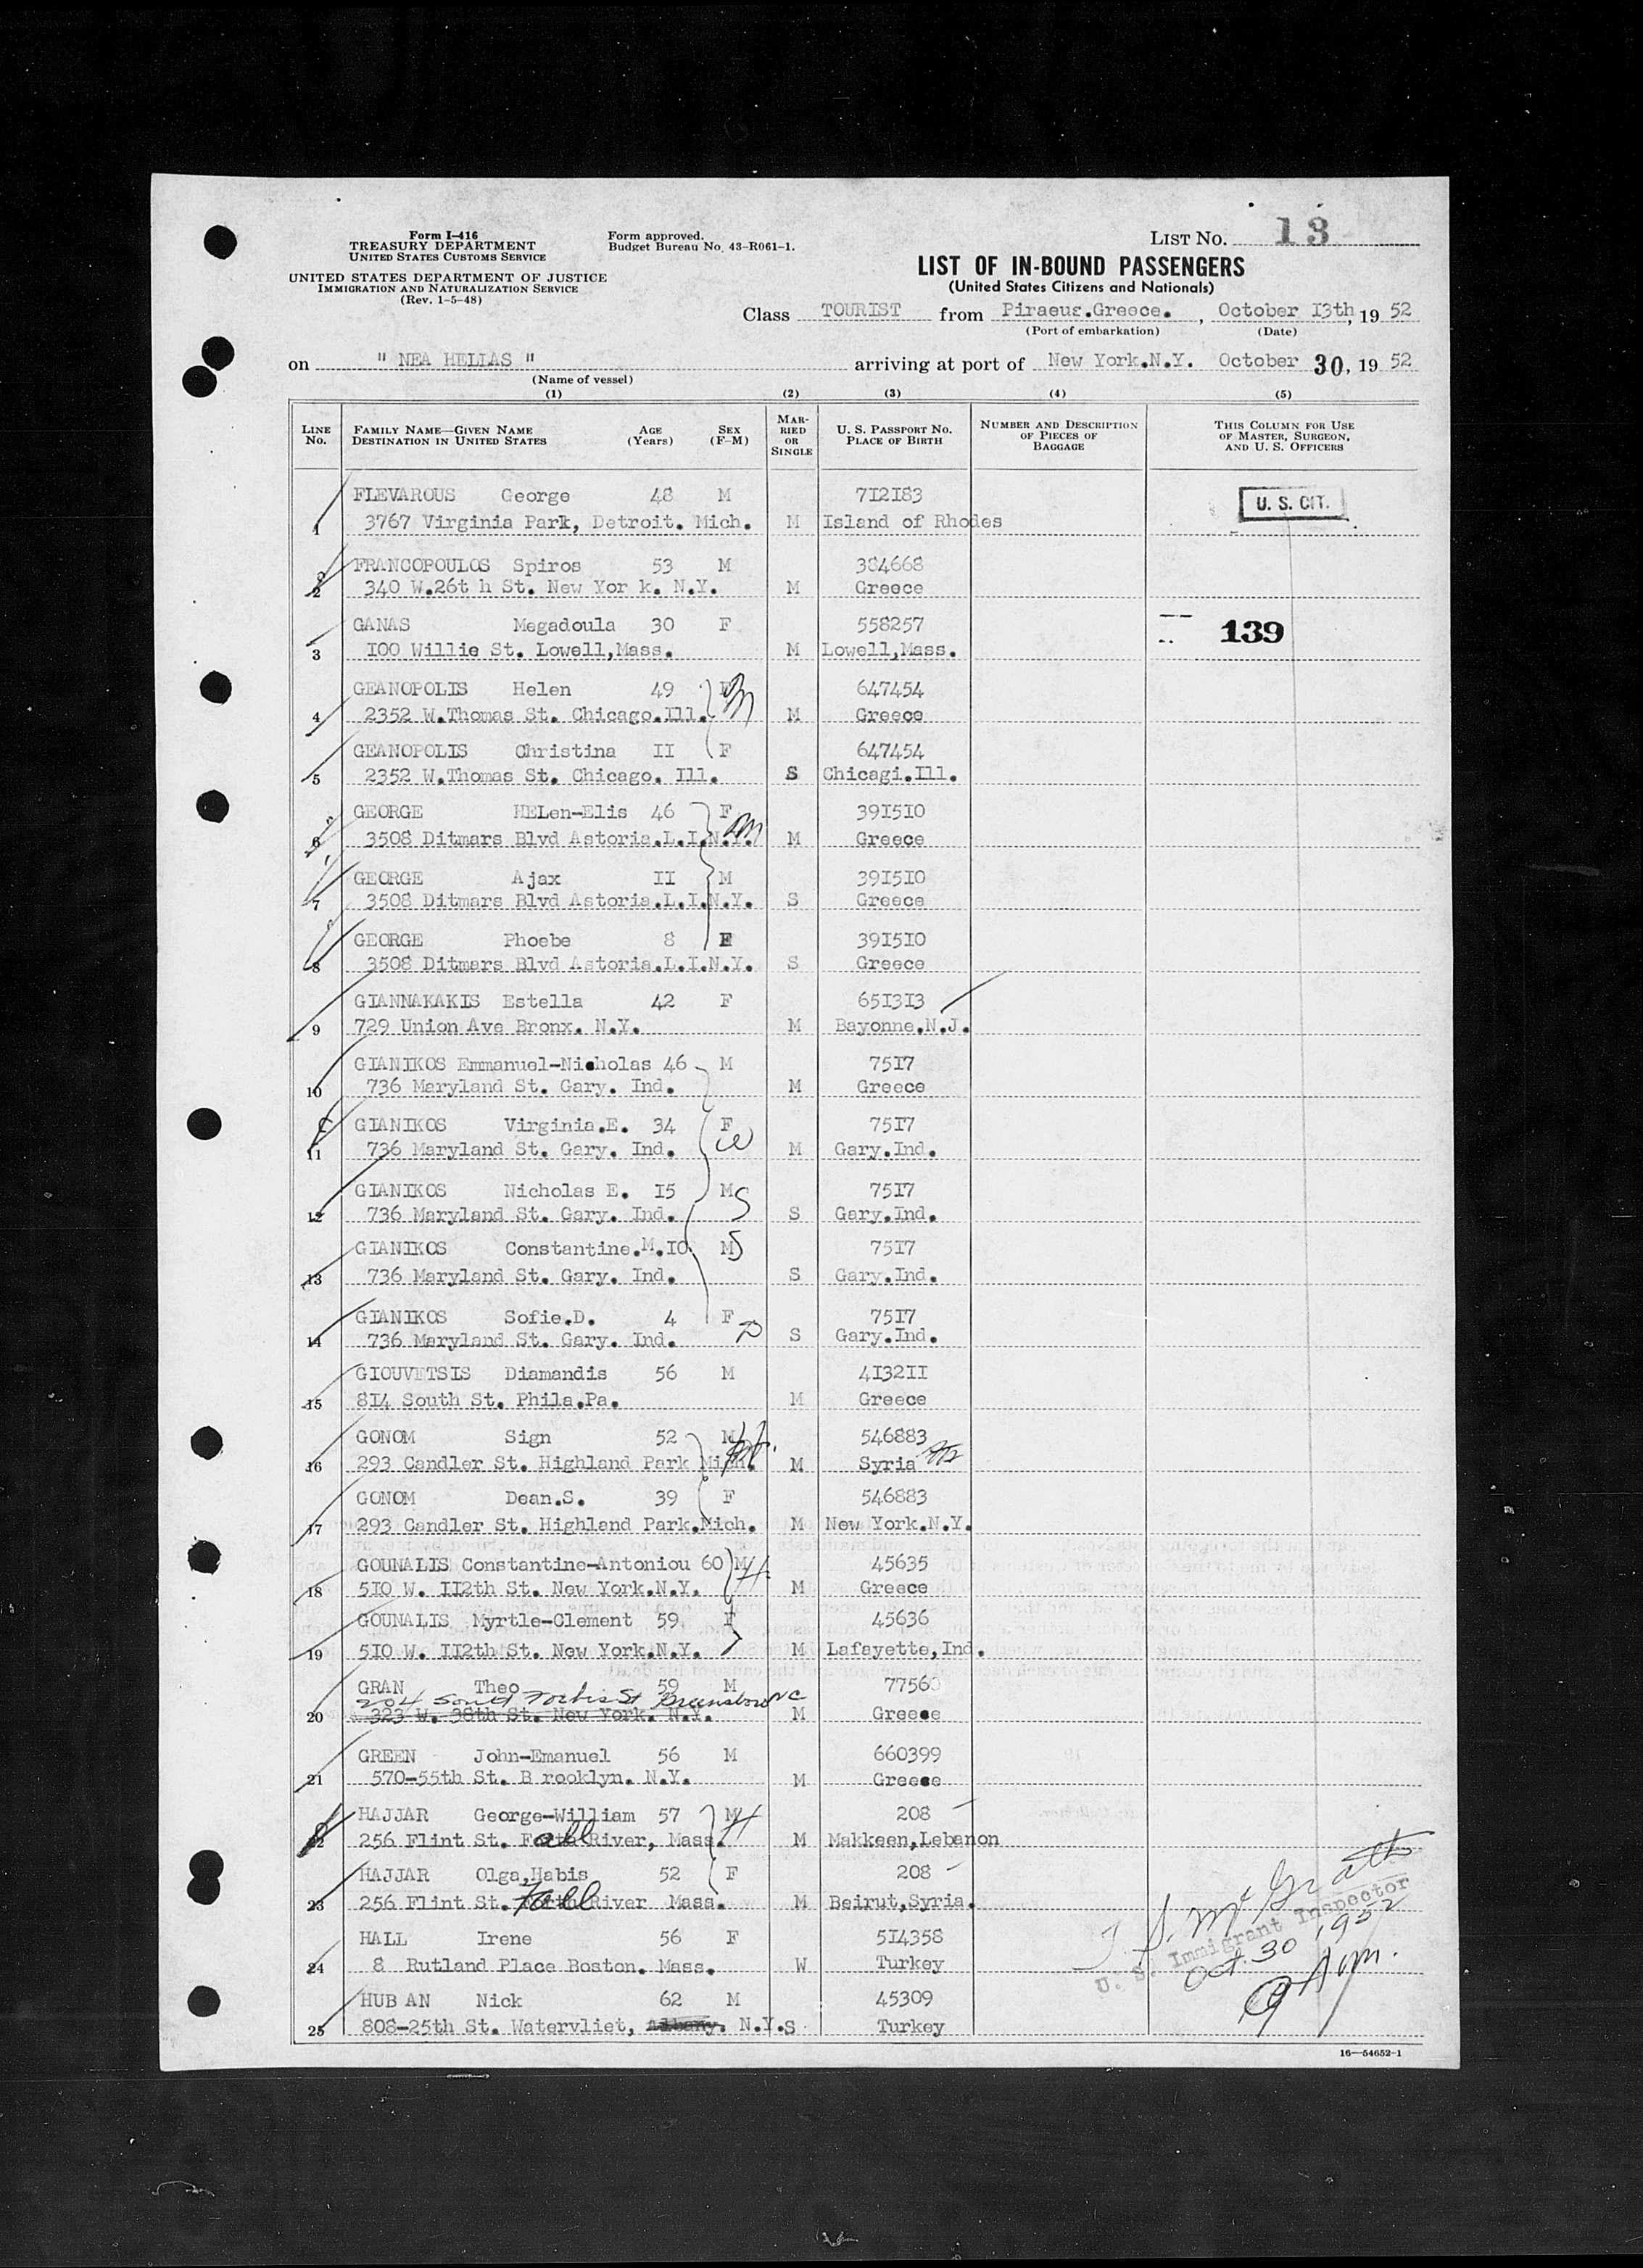 Form I-416
TREASURY DEPARTMENT
UNITED STATES CUSTOMS SERVICE
UNITED STATES DEPARTMENT OF JUSTICE
IMMIGRATION AND NATURALIZATION SERVICE
(Rev. 1-5-48)
Form approved.
Budget Bureau No. 43-R061-1.
LIST No. 13
LIST OF IN-BOUND PASSENGERS
(United States Citizens and Nationals)
Class TOURIST from Piraeus.Greece. , October I3th, 19 52
(Port of embarkation) (Date)
on " NEA HELLAS " arriving at port of New York.N.Y. October 30, 19 52
(Name of vessel)
(1) (2) (3) (4) (5)
LINE No. FAMILY NAME—GIVEN NAME DESTINATION IN UNITED STATES AGE (Years) SEX (F-M) MARRIED OR SINGLE U. S. PASSPORT No. PLACE OF BIRTH NUMBER AND DESCRIPTION OF PIECES OF BAGGAGE THIS COLUMN FOR USE OF MASTER, SURGEON, AND U. S. OFFICERS
FLEVAROUS George 48 M 7I2I83 U. S. CIT.
1 3767 Virginia Park, Detroit. Mich. M Island of Rhodes
FRANCOPOULOS Spiros 53 M 384668
2 340 W.26t h St. New Yor k. N.Y. M Greece
GANAS Megadoula 30 F 558257 139
3 I00 Willie St. Lowell,Mass. M Lowell,Mass.
GEANOPOLIS Helen 49 F 647454
4 2352 W.Thomas St. Chicago.Ill. M Greece
GEANOPOLIS Christina II F 647454
5 2352 W.Thomas St. Chicago. Ill. S Chicagi.Ill.
GEORGE HELen-Elis 46 F 39I5I0
6 3508 Ditmars Blvd Astoria.L.I.N.Y. M Greece
GEORGE Ajax II M 39I5I0
7 3508 Ditmars Blvd Astoria.L.I.N.Y. S Greece
GEORGE Phoebe 8 F 39I5I0
8 3508 Ditmars Blvd Astoria.L.I.N.Y. S Greece
GIANNAKAKIS Estella 42 F 65I3I3
9 729 Union Ave Bronx. N.Y. M Bayonne.N.J.
GIANIKOS Emmanuel-Nicholas 46 M 75I7
10 736 Maryland St. Gary. Ind. M Greece
GIANIKOS Virginia.E. 34 F 75I7
11 736 Maryland St. Gary. Ind. M Gary.Ind.
GIANIKOS Nicholas E. I5 M S 75I7
12 736 Maryland St. Gary. Ind. S Gary.Ind.
GIANIKOS Constantine.M.I0 M S 75I7
13 736 Maryland St. Gary. Ind. S Gary.Ind.
GIANIKOS Sofie.D. 4 F D 75I7
14 736 Maryland St. Gary. Ind. S Gary.Ind.
GIOUVETSIS Diamandis 56 M 4I32II
15 8I4 South St. Phila.Pa. M Greece
GONOM Sign 52 M 546883
16 293 Candler St. Highland Park Mich. M Syria
GONOM Dean.S. 39 F 546883
17 293 Candler St. Highland Park.Mich. M New York.N.Y.
GOUNALIS Constantine-Antoniou 60 M H 45635
18 5I0 W. II2th St. New York.N.Y. M Greece
GOUNALIS Myrtle-Clement 59 F 45636
19 5I0 W. II2th St. New York.N.Y. M Lafayette,Ind.
GRAN Theo 59 M 77560
204 South Forbis St Greensboro NC
20 323 W. 38th St. New York. N.Y. M Greece
GREEN John-Emanuel 56 M 660399
21 570-55th St. B rooklyn. N.Y. M Greece
HAJJAR George-William 57 M H 208
22 256 Flint St. Fall River, Mass. M Makkeen,Lebanon
HAJJAR Olga,Habis 52 F 208
23 256 Flint St. Fall River Mass. M Beirut,Syria.
HALL Irene 56 F 5I4358
24 8 Rutland Place Boston. Mass. W Turkey
HUB AN Nick 62 M 45309
25 808-25th St. Watervliet, Albany. N.Y.S Turkey
J. S. McGrath
U. S. Immigrant Inspector
Oct. 30, 1952
16—54652-1